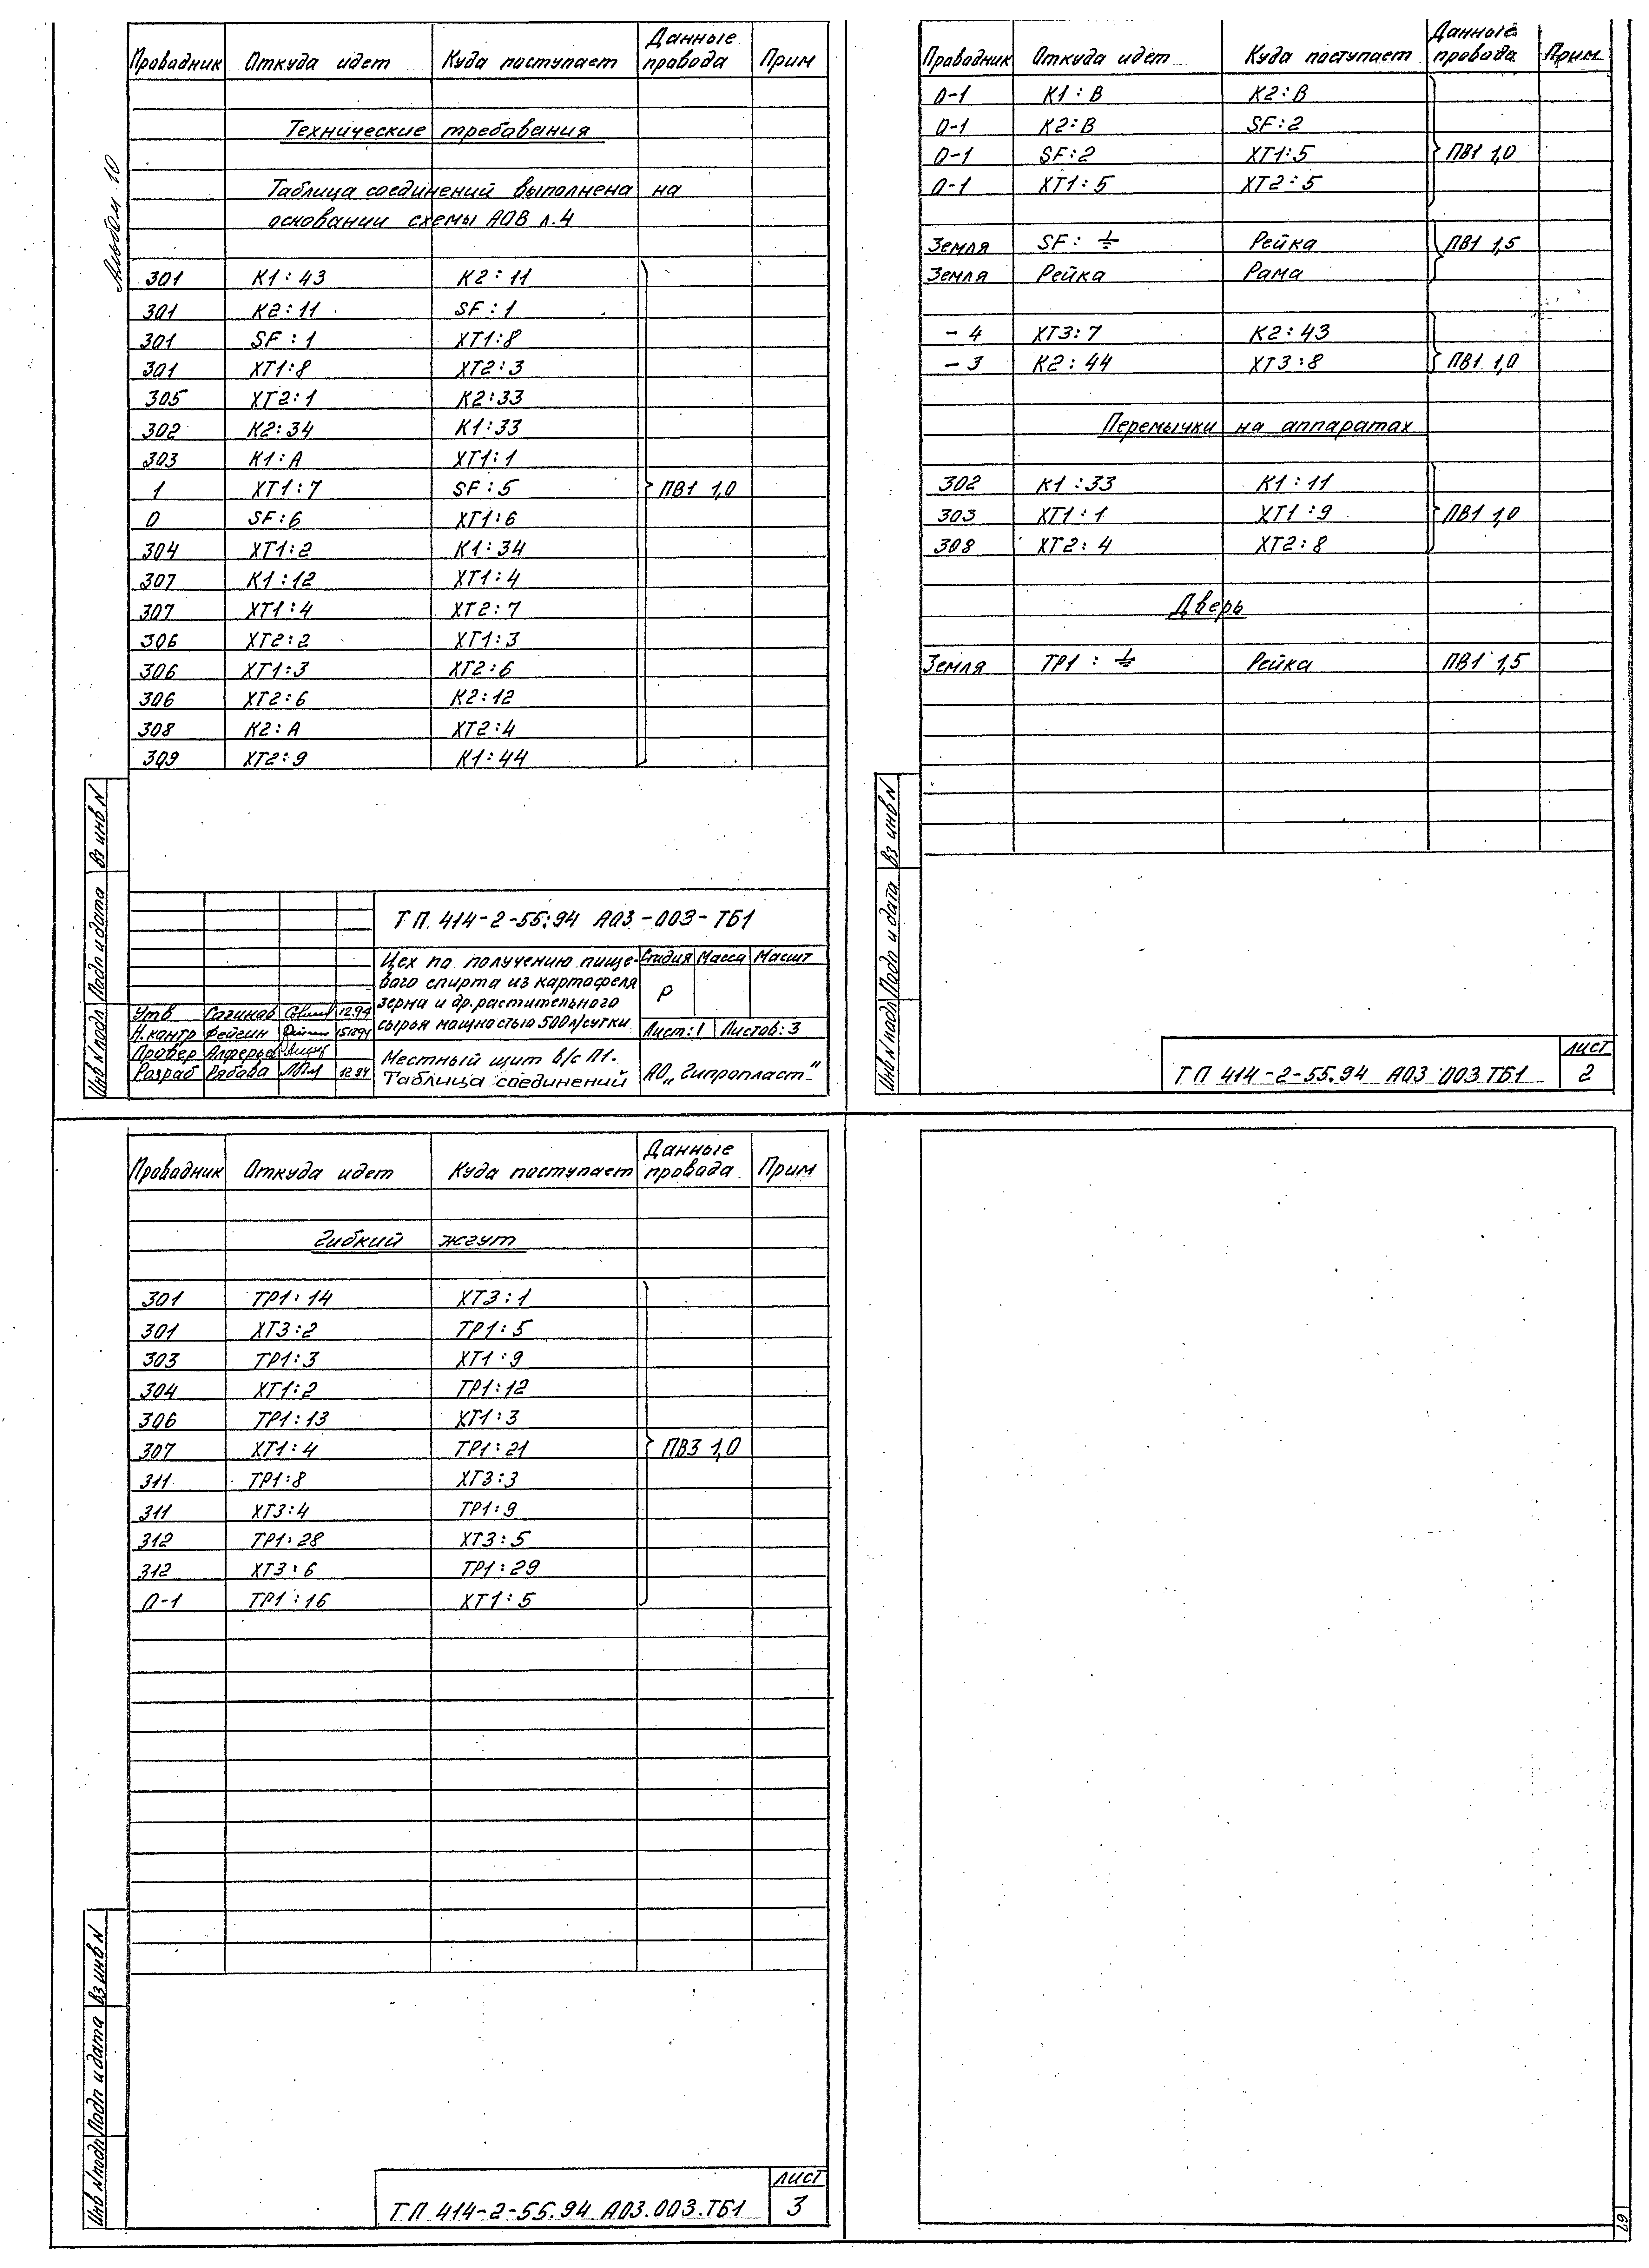 Альбом 10
Проводник Откуда идет Куда поступает Данные провода Прим
Технические требования
Таблица соединений выполнена на
основании схемы АОВ л.4
301 К1:43 К2:11
301 К2:11 SF:1
301 SF:1 ХТ1:8
301 ХТ1:8 ХТ2:3
305 ХТ2:1 К2:33
302 К2:34 К1:33
303 К1:А ХТ1:1
1 ХТ1:7 SF:5 ПВ1 1,0
0 SF:6 ХТ1:6
304 ХТ1:2 К1:34
307 К1:12 ХТ1:4
307 ХТ1:4 ХТ2:7
306 ХТ2:2 ХТ1:3
306 ХТ1:3 ХТ2:6
306 ХТ2:6 К2:12
308 К2:А ХТ2:4
309 ХТ2:9 К1:44
Инв N подл Подп и дата Вз инв N
ТП 414-2-55.94 А03-003-ТБ1
Цех по получению пище-
вого спирта из картофеля
зерна и др. растительного
сырья мощностью 500л/сутки
Стадия Масса Масшт
Р
Лист:1 Листов:3
Утв Сагинов 12.94
Н.контр Фейгин 151294
Провер Алферьев
Разраб Рябова 12.94
Местный щит в/с П1.
Таблица соединений
АО „Гипропласт"
Проводник Откуда идет Куда поступает Данные провода Прим
0-1 К1:В К2:В
0-1 К2:В SF:2
0-1 SF:2 ХТ1:5 ПВ1 1,0
0-1 ХТ1:5 ХТ2:5
Земля SF:⏚ Рейка ПВ1 1,5
Земля Рейка Рама
-4 ХТ3:7 К2:43
-3 К2:44 ХТ3:8 ПВ1 1,0
Перемычки на аппаратах
302 К1:33 К1:11
303 ХТ1:1 ХТ1:9 ПВ1 1,0
308 ХТ2:4 ХТ2:8
Дверь
Земля ТР1:⏚ Рейка ПВ1 1,5
Инв N подл Подп и дата Вз инв N
ТП 414-2-55.94 А03 003 ТБ1
лист
2
Проводник Откуда идет Куда поступает Данные провода Прим
Гибкий жгут
301 ТР1:14 ХТ3:1
301 ХТ3:2 ТР1:5
303 ТР1:3 ХТ1:9
304 ХТ1:2 ТР1:12
306 ТР1:13 ХТ1:3
307 ХТ1:4 ТР1:21 ПВ3 1,0
311 ТР1:8 ХТ3:3
311 ХТ3:4 ТР1:9
312 ТР1:28 ХТ3:5
312 ХТ3:6 ТР1:29
0-1 ТР1:16 ХТ1:5
Инв N подл Подп и дата Вз инв N
ТП 414-2-55.94 А03.003.ТБ1
лист
3
67